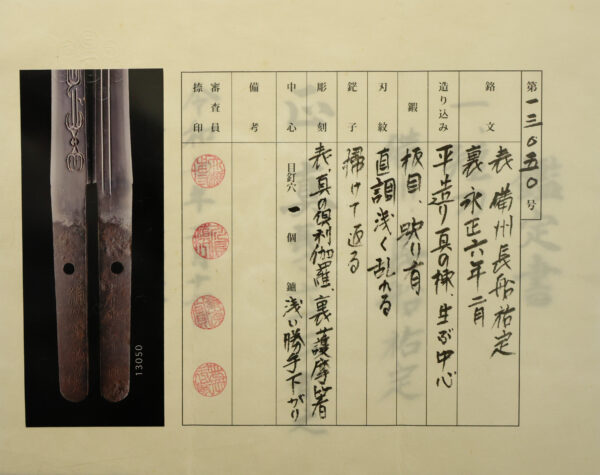 第一三〇五〇号
銘文 表 備州長船祐定
裏 永正六年二月
造り込み 平造り真の棟、生ぶ中心
鍛 板目、映り有
刃紋 直調浅く乱れる
鋩子 掃けて返る
彫刻 表、真の倶利伽羅、裏護摩箸
中心 目釘穴 一個 鑢 浅い勝手下がり
備考
審査員捺印
13050